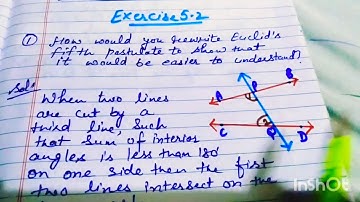 Exercise 5.2
① How would you rewrite Euclid's
fifth postulate to show that
it would be easier to understand?
Sol:
When two lines
are cut by a
third line, such
that sum of interior
angles is less than 180
on one side then the first
two lines intersect on the
A
P
B
C
Q
D
InShot